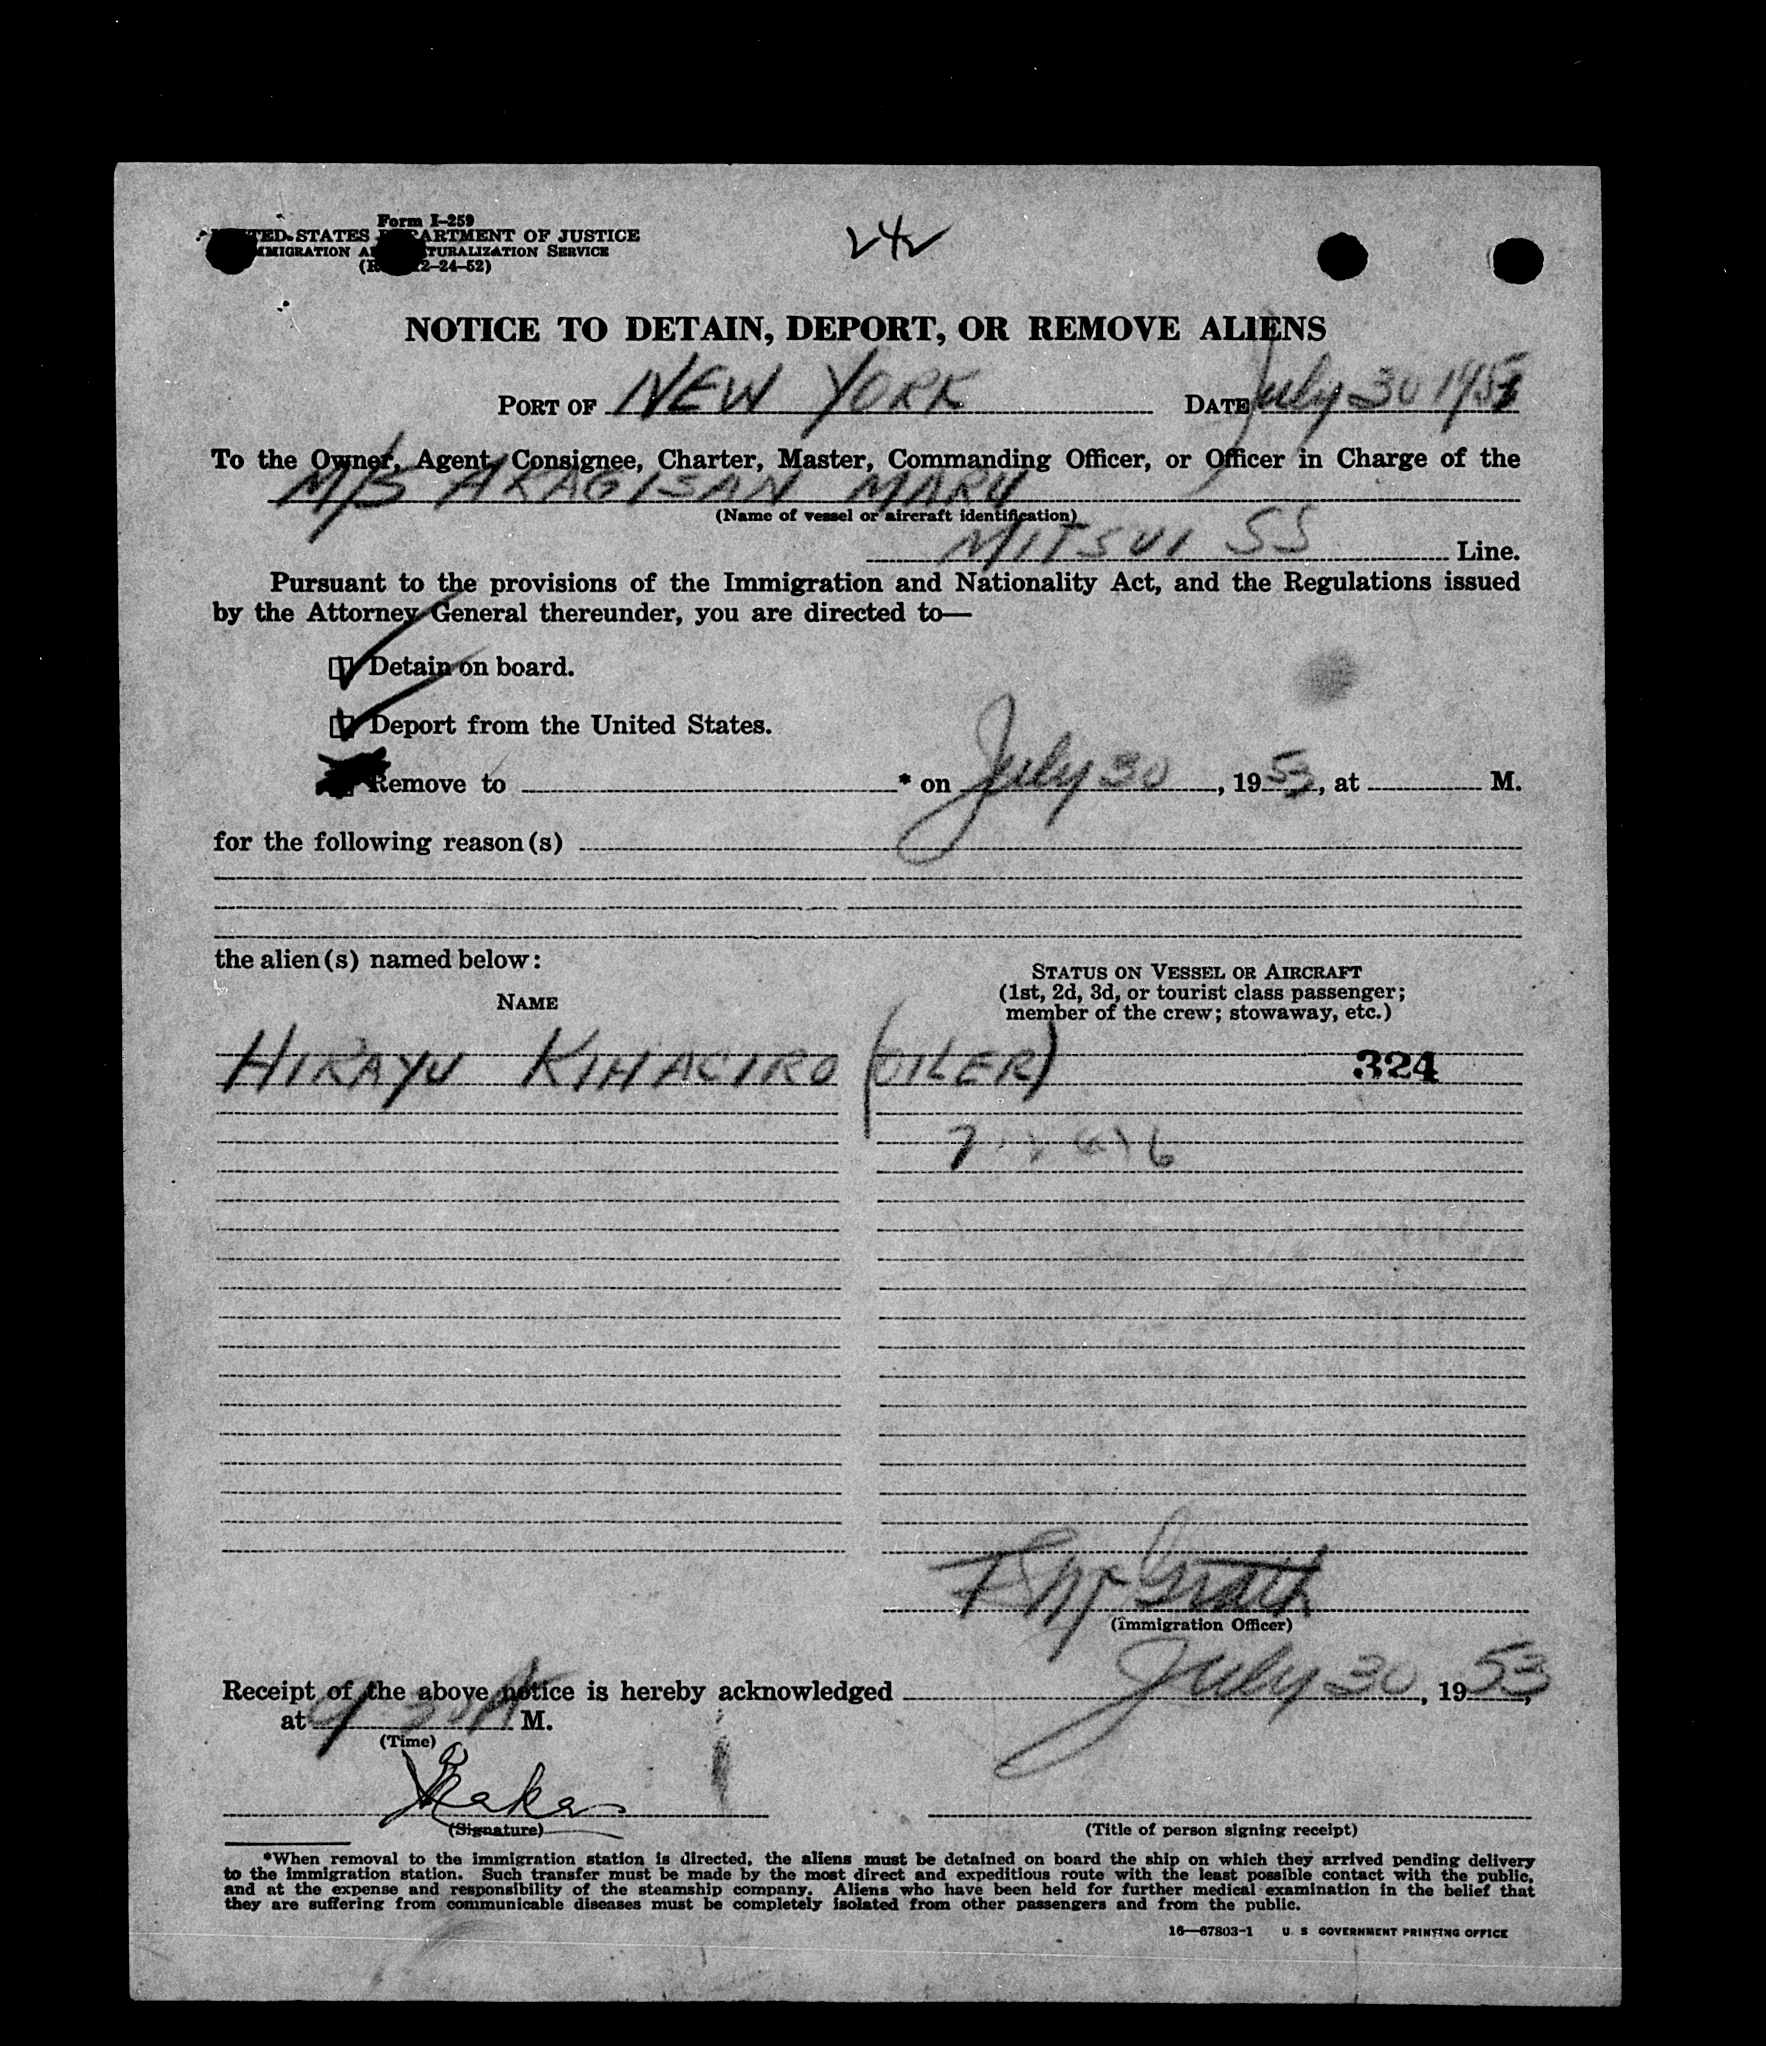 Form I-259
UNITED STATES DEPARTMENT OF JUSTICE
IMMIGRATION AND NATURALIZATION SERVICE
12-24-52)
242
NOTICE TO DETAIN, DEPORT, OR REMOVE ALIENS
PORT OF NEW YORK DATE July 30 195
To the Owner, Agent, Consignee, Charter, Master, Commanding Officer, or Officer in Charge of the
M/S AKAGISAN MARU
(Name of vessel or aircraft identification)
MITSUI SS Line.
Pursuant to the provisions of the Immigration and Nationality Act, and the Regulations issued
by the Attorney General thereunder, you are directed to—
Detain on board.
Deport from the United States.
Remove to * on July 30, 1953, at M.
for the following reason(s)
the alien(s) named below:
NAME
STATUS ON VESSEL OR AIRCRAFT
(1st, 2d, 3d, or tourist class passenger;
member of the crew; stowaway, etc.)
HIRAYU KIHACIRO (OILER) 324
(Immigration Officer)
Receipt of the above notice is hereby acknowledged July 30, 1953,
at 9 30 A M.
(Time)
(Signature)
(Title of person signing receipt)
*When removal to the immigration station is directed, the aliens must be detained on board the ship on which they arrived pending delivery
to the immigration station. Such transfer must be made by the most direct and expeditious route with the least possible contact with the public,
and at the expense and responsibility of the steamship company. Aliens who have been held for further medical examination in the belief that
they are suffering from communicable diseases must be completely isolated from other passengers and from the public.
16—67803-1 U. S GOVERNMENT PRINTING OFFICE